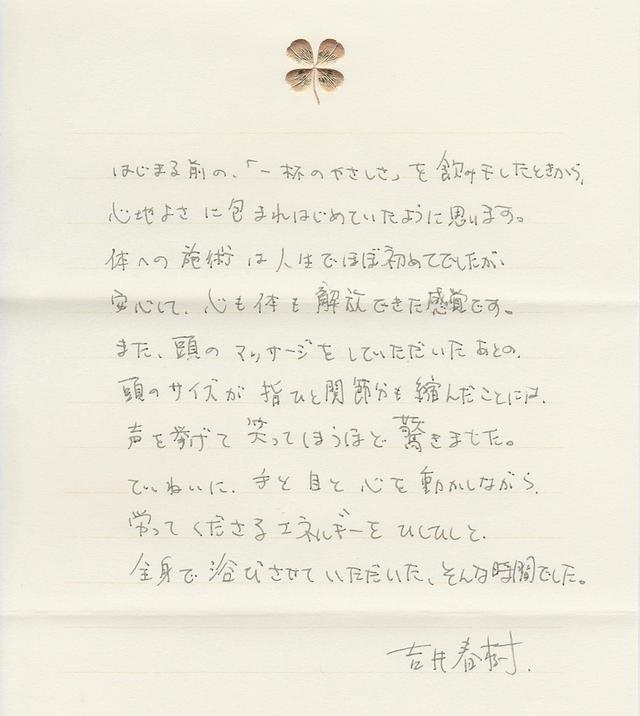 はじまる前の、「一杯のやさしさ」を飲み干したときから、
心地よさに包まれはじめていたように思います。
体への施術は人生でほぼ初めてでしたが、
安心して、心も体も解放できた感覚です。
また、頭のマッサージをしていただいたあとの、
頭のサイズが指ひと関節分も縮んだことには、
声を挙げて笑ってしまうほど驚きました。
ていねいに、手と目と心を動かしながら、
労ってくださるエネルギーをひしひしと、
全身で浴びさせていただいた、そんな時間でした。
吉井春樹.